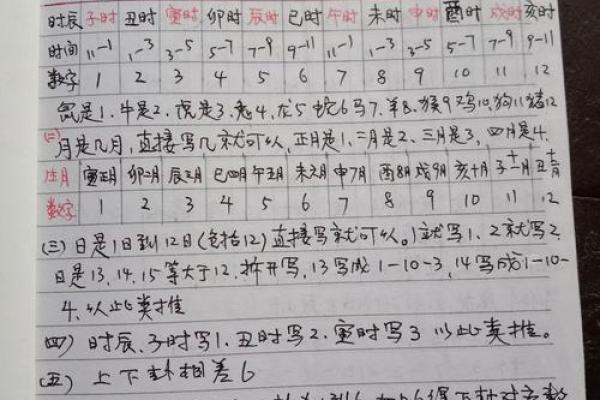 时辰 子时 丑时 寅时 卯时 辰时 巳时 午时 未时 申时 酉时 戌时 亥时
时间 11-1 1-3 3-5 5-7 7-9 9-11 11-1 1-3 3-5 5-7 7-9 9-11
数字 1 2 3 4 5 6 7 8 9 10 11 12
鼠是1.牛是2.虎是3.兔4.龙5蛇6马7.羊8.猴9鸡10.狗11猪12
(二)月是几月,直接写几就可以,正月是1.二月是2.三月是3,四月是4.
庄月 寅正月 卯二月 辰三月 巳四月 午五月 未六月 申7月 酉8月 戌9月 亥十月 子十一月 丑十二月
数字 1 2 3 4 5 6 7 8 9 10 11 12
(三)日是1日到12日(包括12)直接写就可以。1就写1、2就写2
日是13,14,15等大于12.拆开写,13写成1-10-3,14写成1-10-
4.以此类推
(四)时辰.子时写1.丑时写2.寅时写3以此类推。
(五)上下卦相差6